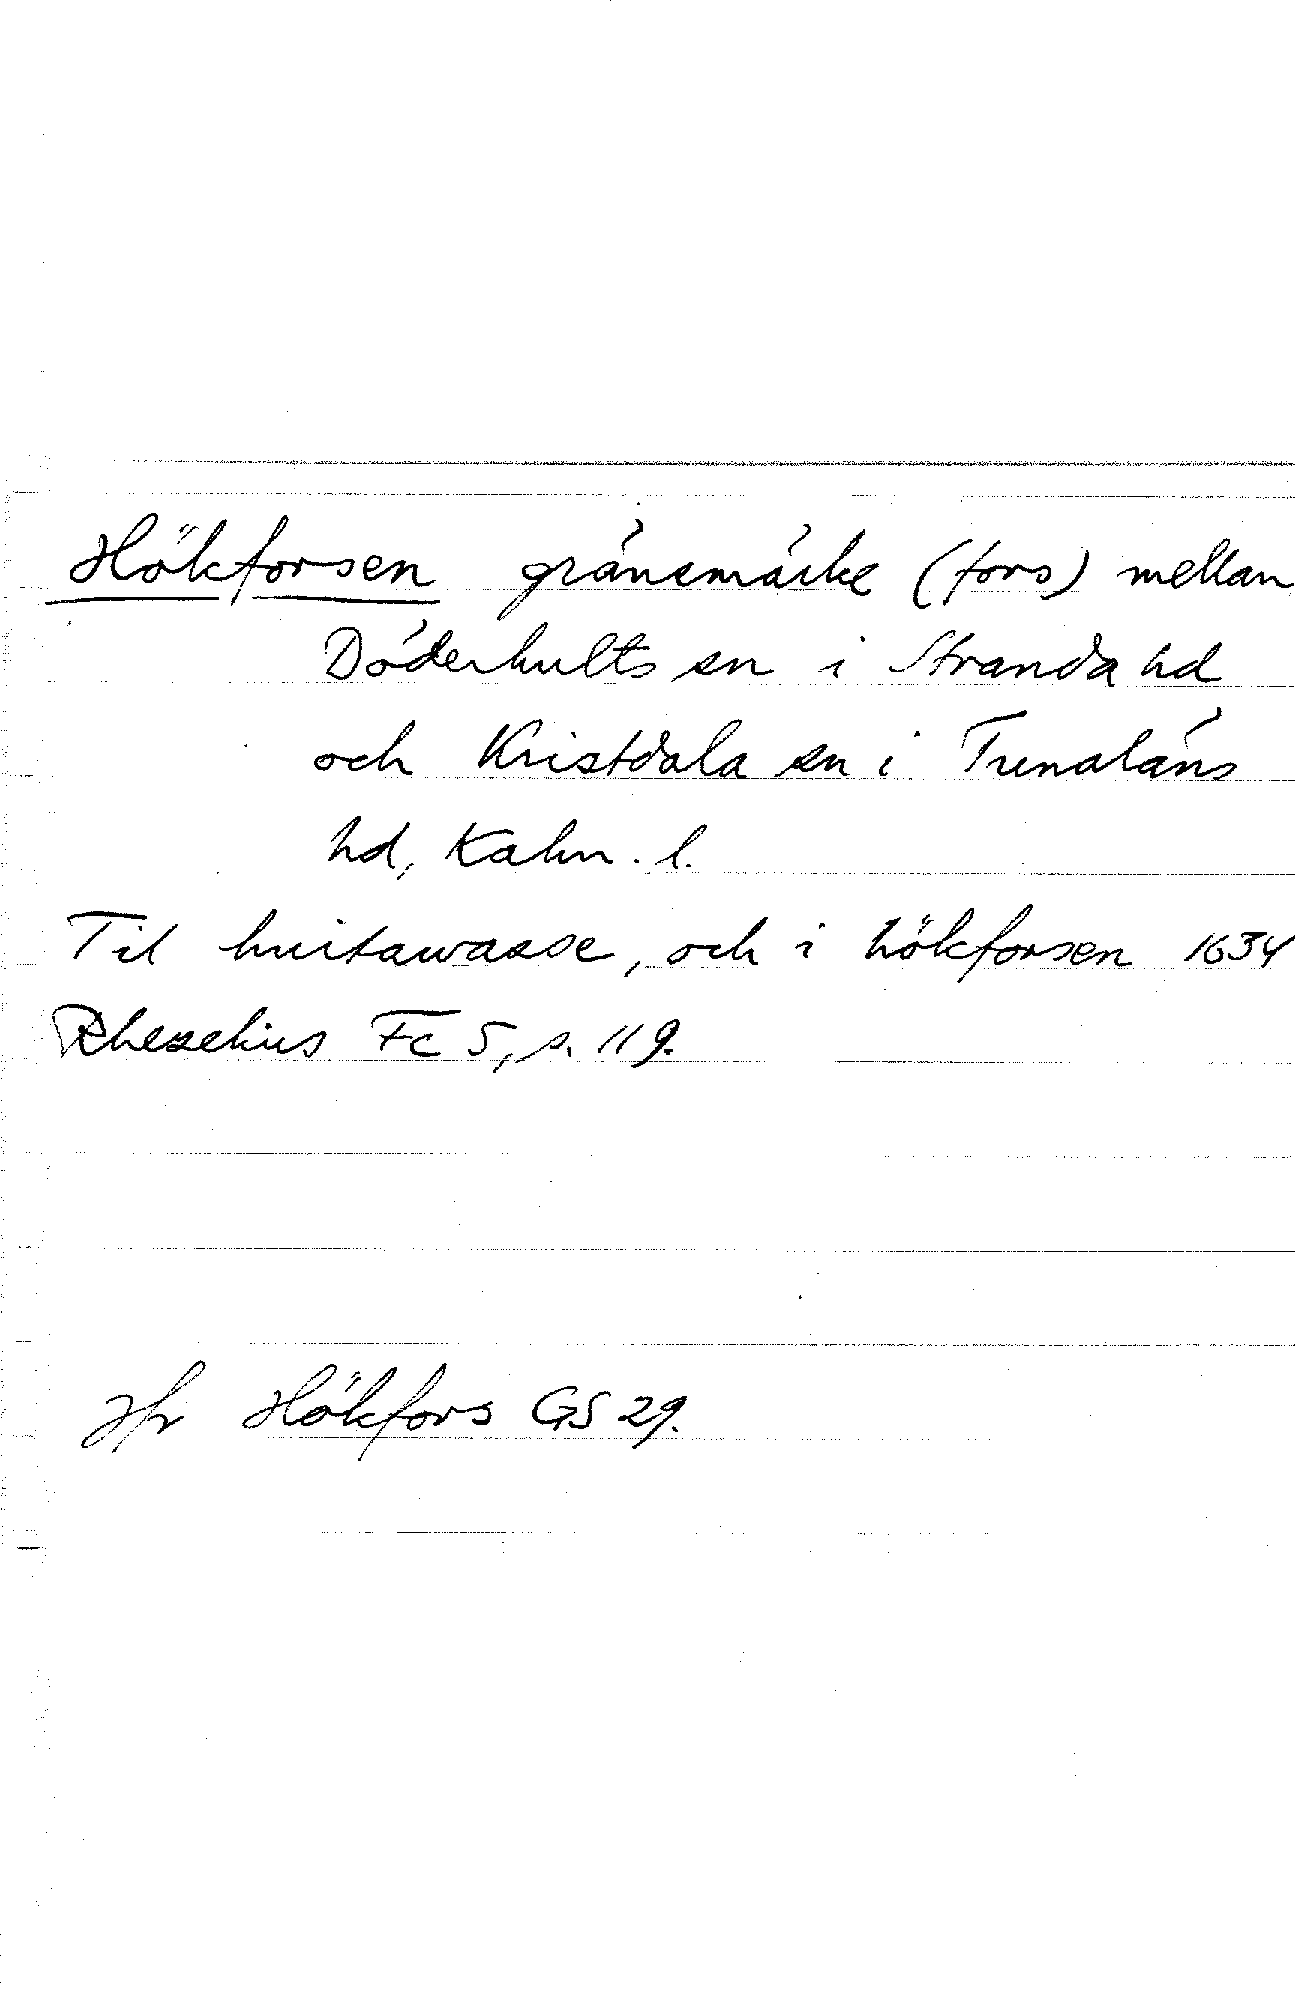 Hökforsen gränsmärke (fors) mellan
Döderhults sn i Stranda hd
och Kristdala sn i Tunaläns
hd, Kalm. l.
Til huitawasse, och i hökforsen 1634
Rhezelius Fc 5, s. 119.
Jfr Hökfors GS 29.